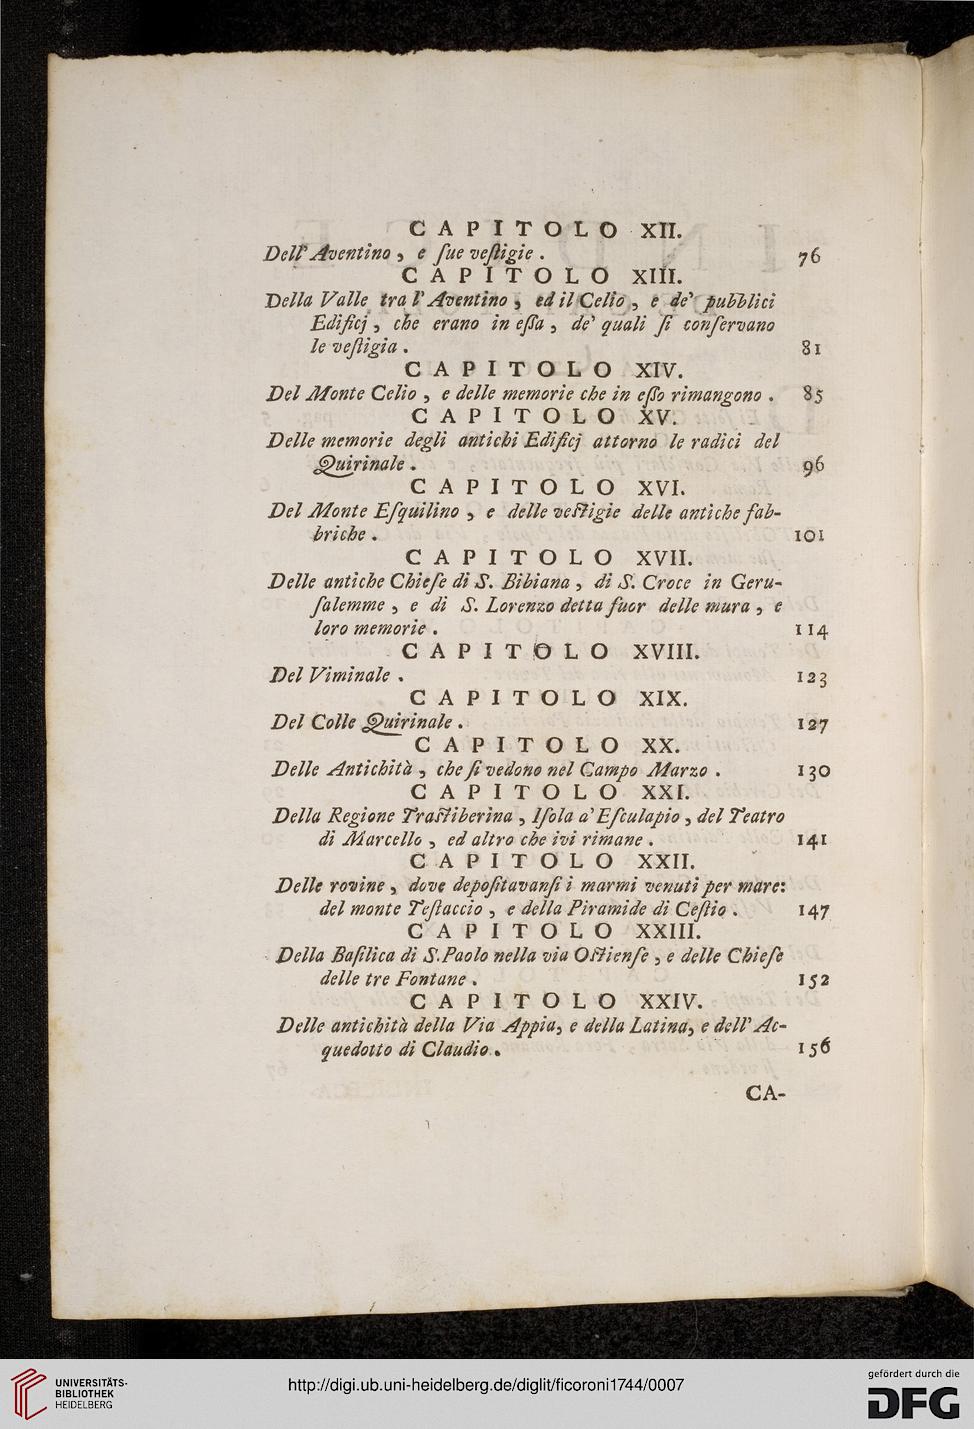 CAPITOLO XII.
Dell' Aventino, e ſue veſtigie. 76
CAPITOLO XIII.
Della Valle tra l' Aventino, ed il Celio, e de' pubblici
Edificj, che erano in eſſa, de' quali ſi conſervano
le veſtigia. 81
CAPITOLO XIV.
Del Monte Celio, e delle memorie che in eſſo rimangono. 85
CAPITOLO XV.
Delle memorie degli antichi Edificj attorno le radici del
Quirinale. 96
CAPITOLO XVI.
Del Monte Eſquilino, e delle veſtigie delle antiche fab-
briche. 101
CAPITOLO XVII.
Delle antiche Chieſe di S. Bibiana, di S. Croce in Geru-
ſalemme, e di S. Lorenzo detta fuor delle mura, e
loro memorie. 114
CAPITOLO XVIII.
Del Viminale. 123
CAPITOLO XIX.
Del Colle Quirinale. 127
CAPITOLO XX.
Delle Antichità, che ſi vedono nel Campo Marzo. 130
CAPITOLO XXI.
Della Regione Traſtiberina, Iſola d' Eſculapio, del Teatro
di Marcello, ed altro che ivi rimane. 141
CAPITOLO XXII.
Delle rovine, dove depoſitavanſi i marmi venuti per mare:
del monte Teſtaccio, e della Piramide di Ceſtio. 147
CAPITOLO XXIII.
Della Baſilica di S. Paolo nella via Oſtienſe, e delle Chieſe
delle tre Fontane. 152
CAPITOLO XXIV.
Delle antichità della Via Appia, e della Latina, e dell' Ac-
quedotto di Claudio. 156
CA-
UNIVERSITÄTS-
BIBLIOTHEK
HEIDELBERG
http://digi.ub.uni-heidelberg.de/diglit/ficoroni1744/0007
gefördert durch die
DFG